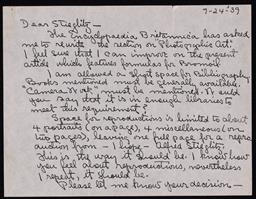 7-24-39
Dear Stieglitz —
The Encyclopaedia Britannica has asked
me to rewrite the section on "Photographic Art".
I feel sure that I can improve on the present
article which features formulas for Bromoil
I am allowed a short space for Bibliography
Books mentioned must be generally available.
"Camera Work" must be mentioned. Would
you say that it is in enough libraries to
meet this requirement?
Space for reproductions is limited to about
4 portraits (on a page), 4 miscellaneous (on
two pages), leaving one full page for a repro-
duction from — I hope — Alfred Stieglitz.
This is the way it should be. I know how
you feel about reproductions, nevertheless
I repeat, it should be.
Please let me know your decision —